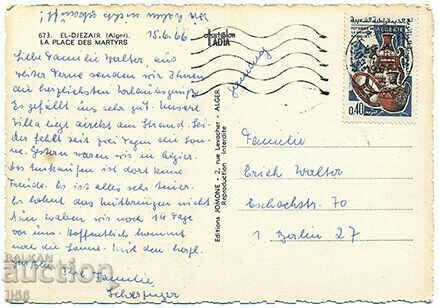 673. EL-DJEZAIR (Alger).
LA PLACE DES MARTYRS
15.6.66
Liebe Dame Walter, aus
weiter Ferne senden wir Ihnen
die herzlichsten Urlaubsgrüße
Es gefällt uns sehr gut. Unsere
Villa liegt direkt am Strand. Lei-
der fehlt seit zwei Tagen die Son-
ne. Gestern waren wir in Algier.
Das Einkaufen ist dort keine
Freude. Es ist alles sehr teuer.
Es lohnt das Mitbringen nicht
wir haben wir noch 14 Tage
vor uns. Hoffentlich kommt
noch die Sonne. Mit den herzl.
Ihre Familie
Editions JOMONE - 2, rue Levacher - ALGER
Reproduction Interdite
0,40
Familie
Erich Walter
Eschachstr. 70
1 Berlin 27
BALKAN
AUCTION